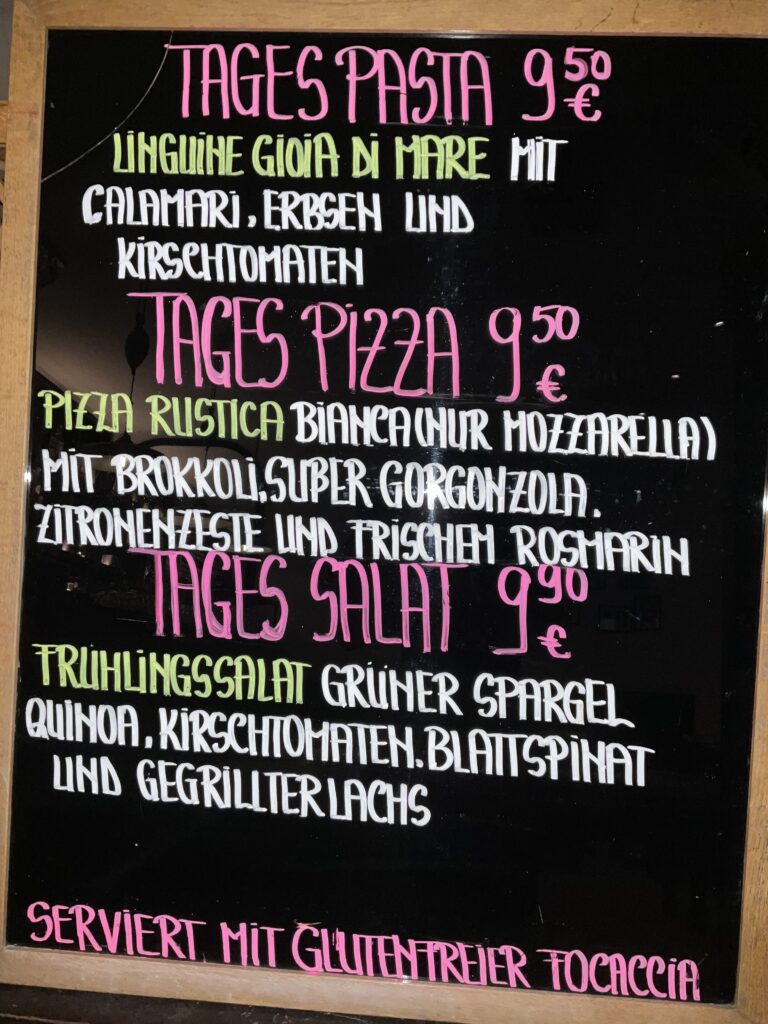 TAGES PASTA 9 50 €
LINGUINE GIOIA DI MARE MIT
CALAMARI, ERBSEN UND
KIRSCHTOMATEN
TAGES PIZZA 9 50 €
PIZZA RUSTICA BIANCA (NUR MOZZARELLA)
MIT BROKKOLI, SUßER GORGONZOLA.
ZITRONENZESTE UND FRISCHEM ROSMARIN
TAGES SALAT 9 90 €
FRÜHLINGSSALAT GRÜNER SPARGEL
QUINOA, KIRSCHTOMATEN. BLATTSPINAT
UND GEGRILLTER LACHS
SERVIERT MIT GLUTENFREIER FOCACCIA